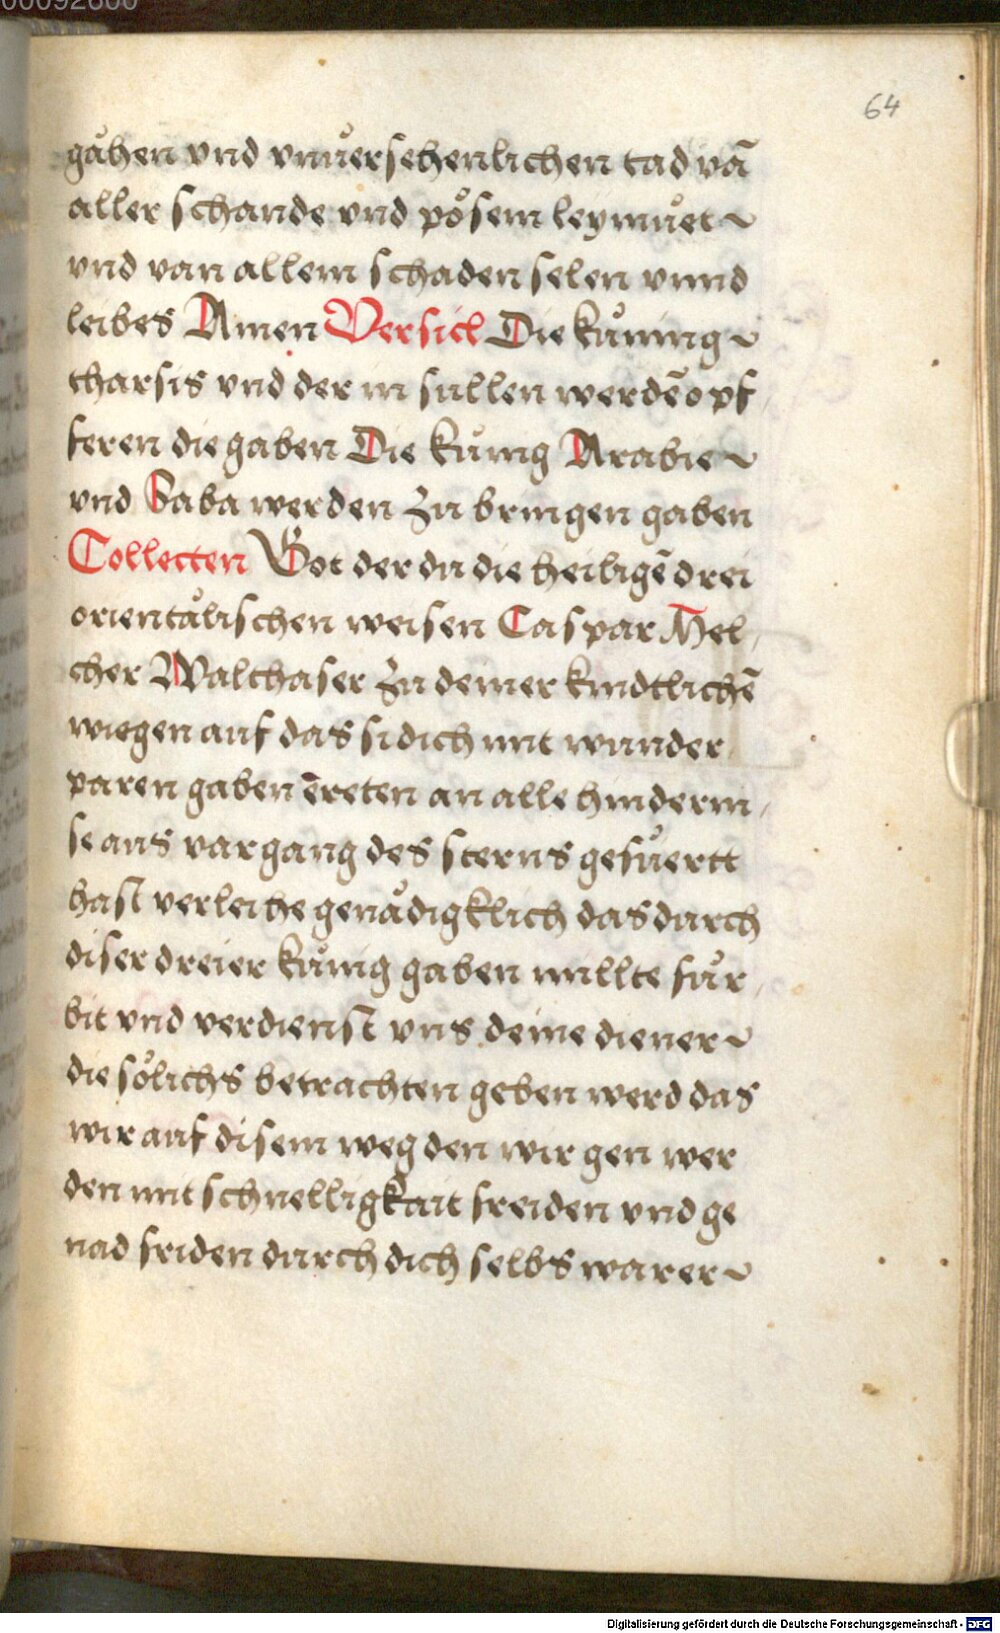 00092600
64
gaͤhen vnd vnuͤersehenlichen tad vā
aller schande vnd poͤsem leymuͤet ~
vnd van allem schaden selen vnnd
leibes Amen Versicl Die kuͤning ~
tharsis vnd der in sullen werdē opf
feren die gaben Die kuͤnig Arabie ~
vnd Saba werden zu bringen gaben
Collecten Got der du die heiligē drei
orientaͤlischen weisen Caspar Mel
cher Walthaser zu deiner kindtlichē
wiegen auf das si dich mit wunder
paren gaben ēreten an alle hindernu
se aus vargang des sterns gefuͤertt
hast verleihe genaͤdigklich das durch
diser dreier kuͤnig gaben millte fuͤr
bit vnd verdienst vns deine diener ~
die soͤlichs betrachten geben werd das
wir auf disem weg den wir gen wer
den mit schnelligkait freiden vnd ge
nad friden durch dich selbs warer ~
Digitalisierung gefördert durch die Deutsche Forschungsgemeinschaft - DFG